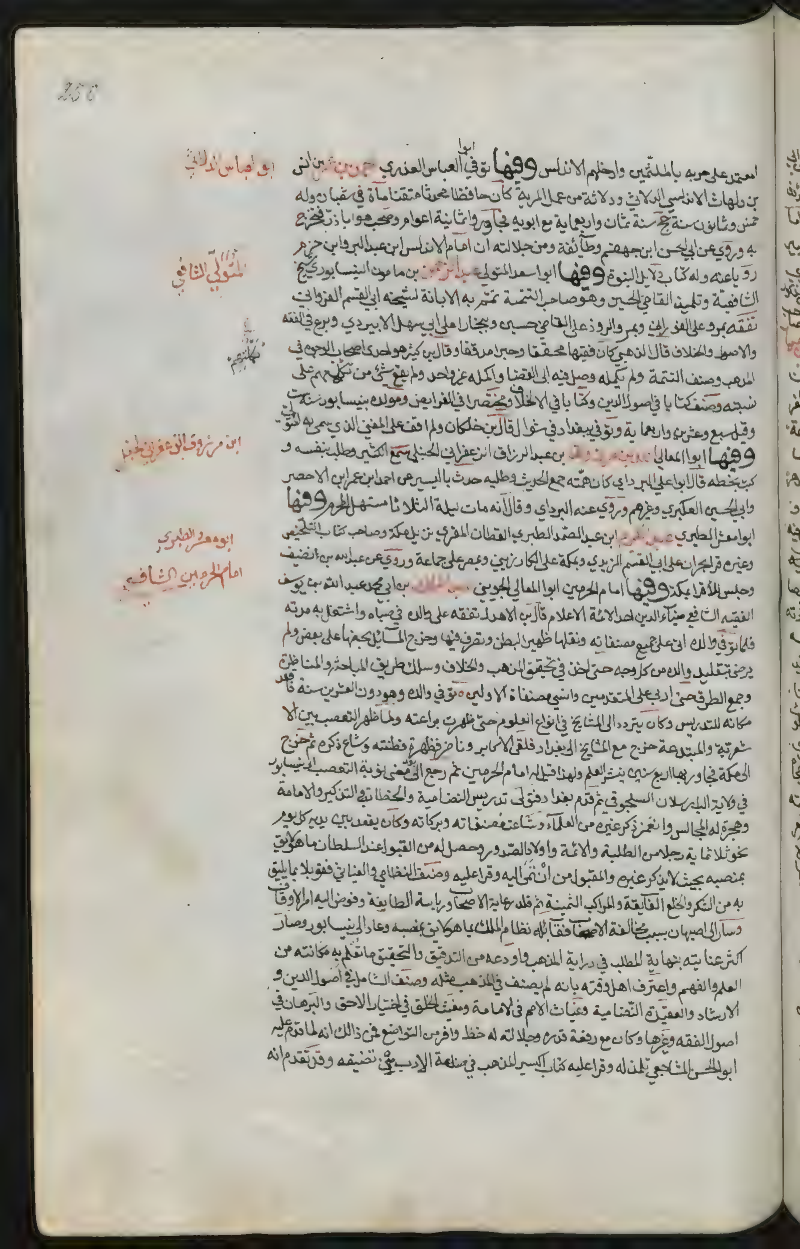 256
ابوا
اعتمد على حربه بالملثمين وادخلهم الاندلس وفيها توفي العباس العذري بن انس
ابو العباس الدلائي
بن دلهاث الاندلسي الدلائي ودلائة من عمل المرية كان حافظا محدثا متقنا مات في شعبان وله
خمس وثمانون سنة حج سنة ثمان واربعماية مع ابويه فجاوروا ثمانية اعوام وصحب هو ابا ذر فتخرج
به وروى عن ابي الحسن ابن جهضم وطائفة ومن جلالته ان امام الاندلس ابن عبد البر وابن حزم
رويا عنه وله كتاب دلايل النبوة وفيها ابوا سعد المتولي عبد الرحمن بن مامون النيسابوري شيخ
المتولي الشافعي
الشافعية وتلميذ القاضي الحسين وهو صاحب التتمة تمم به الابانة لشيخه ابي القسم الفوراني
تفقه بمرو على الفوراني وبمرو الروذ على القاضي حسين وببخارا على ابي سهل الابيردي وبرع في الفقه
والاصول والخلاف قال الذهبي كان فقيها محققا وحبرا مدققا وقال بن كثير هو احد اصحاب الوجوه في
المذهب وصنف التتمة ولم يكمله وصل فيه الى القضا واكمله غير واحد ولم يقع شئ من تكملتهم على
نسبته وصنف كتابا في اصول الدين وكتابا في الاخلاف ومختصرا في الفرايض ومولده بنيسابور سنة ست
وقيل سبع وعشرين واربعماية وتوفي ببغداد في شوال قال بن خلكان ولم اقف على المعنى الذي سمي به المتولي
وفيها ابوا المعالي بن عبد الرزاق الزعفراني الحنبلي سمع الكثير وطلب بنفسه و
ابن مرزوق الزعفراني الحنبلي
كتب بخطه قال ابوا علي البرداني كان همته جمع الحديث وطلبه حدث باليسير عن احمد ابن عمر ابن الاخضر
وابي الحسين العكبري وغيرهم وروى عنه البرداني وقال انه مات ليلة الثلاثا مستهل المحرم وفيها
ابوا معشر الطبري عبد الكريم ابن عبد الصمد الطبري القطان المقري نزيل مكة وصاحب كتاب التلخيص
ابو معشر الطبري
وغيره قرا بحران على ابي القسم الزيدي وبمكة على الكارزيني وبمصر على جماعة وروى عن عبد الله بن نظيف
وجلس للاقرا بمكة وفيها امام الحرمين ابوا المعالي الجويني عبد الملك بن ابي محمد عبد الله بن يوسف
امام الحرمين الشافعي
الفقيه الشافعي ضياء الدين احد الائمة الاعلام قال بن الاهدل تفقه على والده في صباه واشتغل به مدته
فلما توفي والده اتى على جميع مصنفاته ونقلها ظهرا لبطن وتصرف فيها وخرج المسائل بعضها على بعض ولم
يرض بتقليد والده من كل وجه حتى اخذ في تحقيق المذهب والخلاف وسلك طريق المباحثة والمناظرة
وجمع الطرق حتى اربى على المتقدمين وانسى مصنفاة الاولين توفي والده وهو دون العشرين سنة فاقعد
مكانه للتدريس وكان يتردد الى المشايخ في انواع العلوم حتى ظهرت براعته ولما ظهر التعصب بين الا
شعرية والمبتدعة خرج مع المشايخ الى بغداد فلقي الاكابر وناظر فظهرة فطنته وشاع ذكره ثم خرج
الى مكة فجاور بها اربع سنين ينشر العلم ولهذا قيل له امام الحرمين ثم رجع بعد مضي نوبة التعصب الى نيسابور
في ولاية الب ارسلان السلجوقي ثم قدم بغداد فتولى تدريس النظامية والخطابة والتذكير والامامة
وهجرة له المجالس وانغمر ذكر غيره من العلماء وشاعة مصنفاته وبركاته وكان يقعد بين يديه كل يوم
نحو ثلاثماية رجلا من الطلبة والائمة واولاد الصدور وحصل له من القبول عند السلطان ما هو لائق
بمنصبه بحيث لا يذكر غيره والمقبول من انتمى اليه وقرا عليه وصنف النظامي والغياثي فقوبلا بما يليق
به من الشكر والخلع الفايقة والمراكب الثمينة ثم قلد رعاية الاصحاب ورياسة الطايفة وفوض اليه امر الاوقاف
وسار الى اصبهان بسبب مخالفة الاصحاب فقابله نظام الملك بما هو لائق بمنصبه وعاد الى نيسابور وصار
اكثر عنايته بنهاية المطلب في دراية المذهب واودعه من التدقيق والتحقيق ما تعلم به مكانته من
العلم والفهم واعترف اهل وقته بانه لم يصنف في المذهب مثله وصنف الشامل في اصول الدين و
الارشاد والعقيدة النظامية وغياث الامم في الامامة ومغيث الخلق في اختيار الاحق والبرهان في
اصول الفقه وغيرها وكان مع رفعة قدره وجلالته له حظ وافر من التواضع فمن ذالك انه لما قدم عليه
ابوا الحسن المجاشعي تلمذ له وقرا عليه كتاب اكسير الذهب في صناعة الادب من تصنيفه وقد تقدم انه